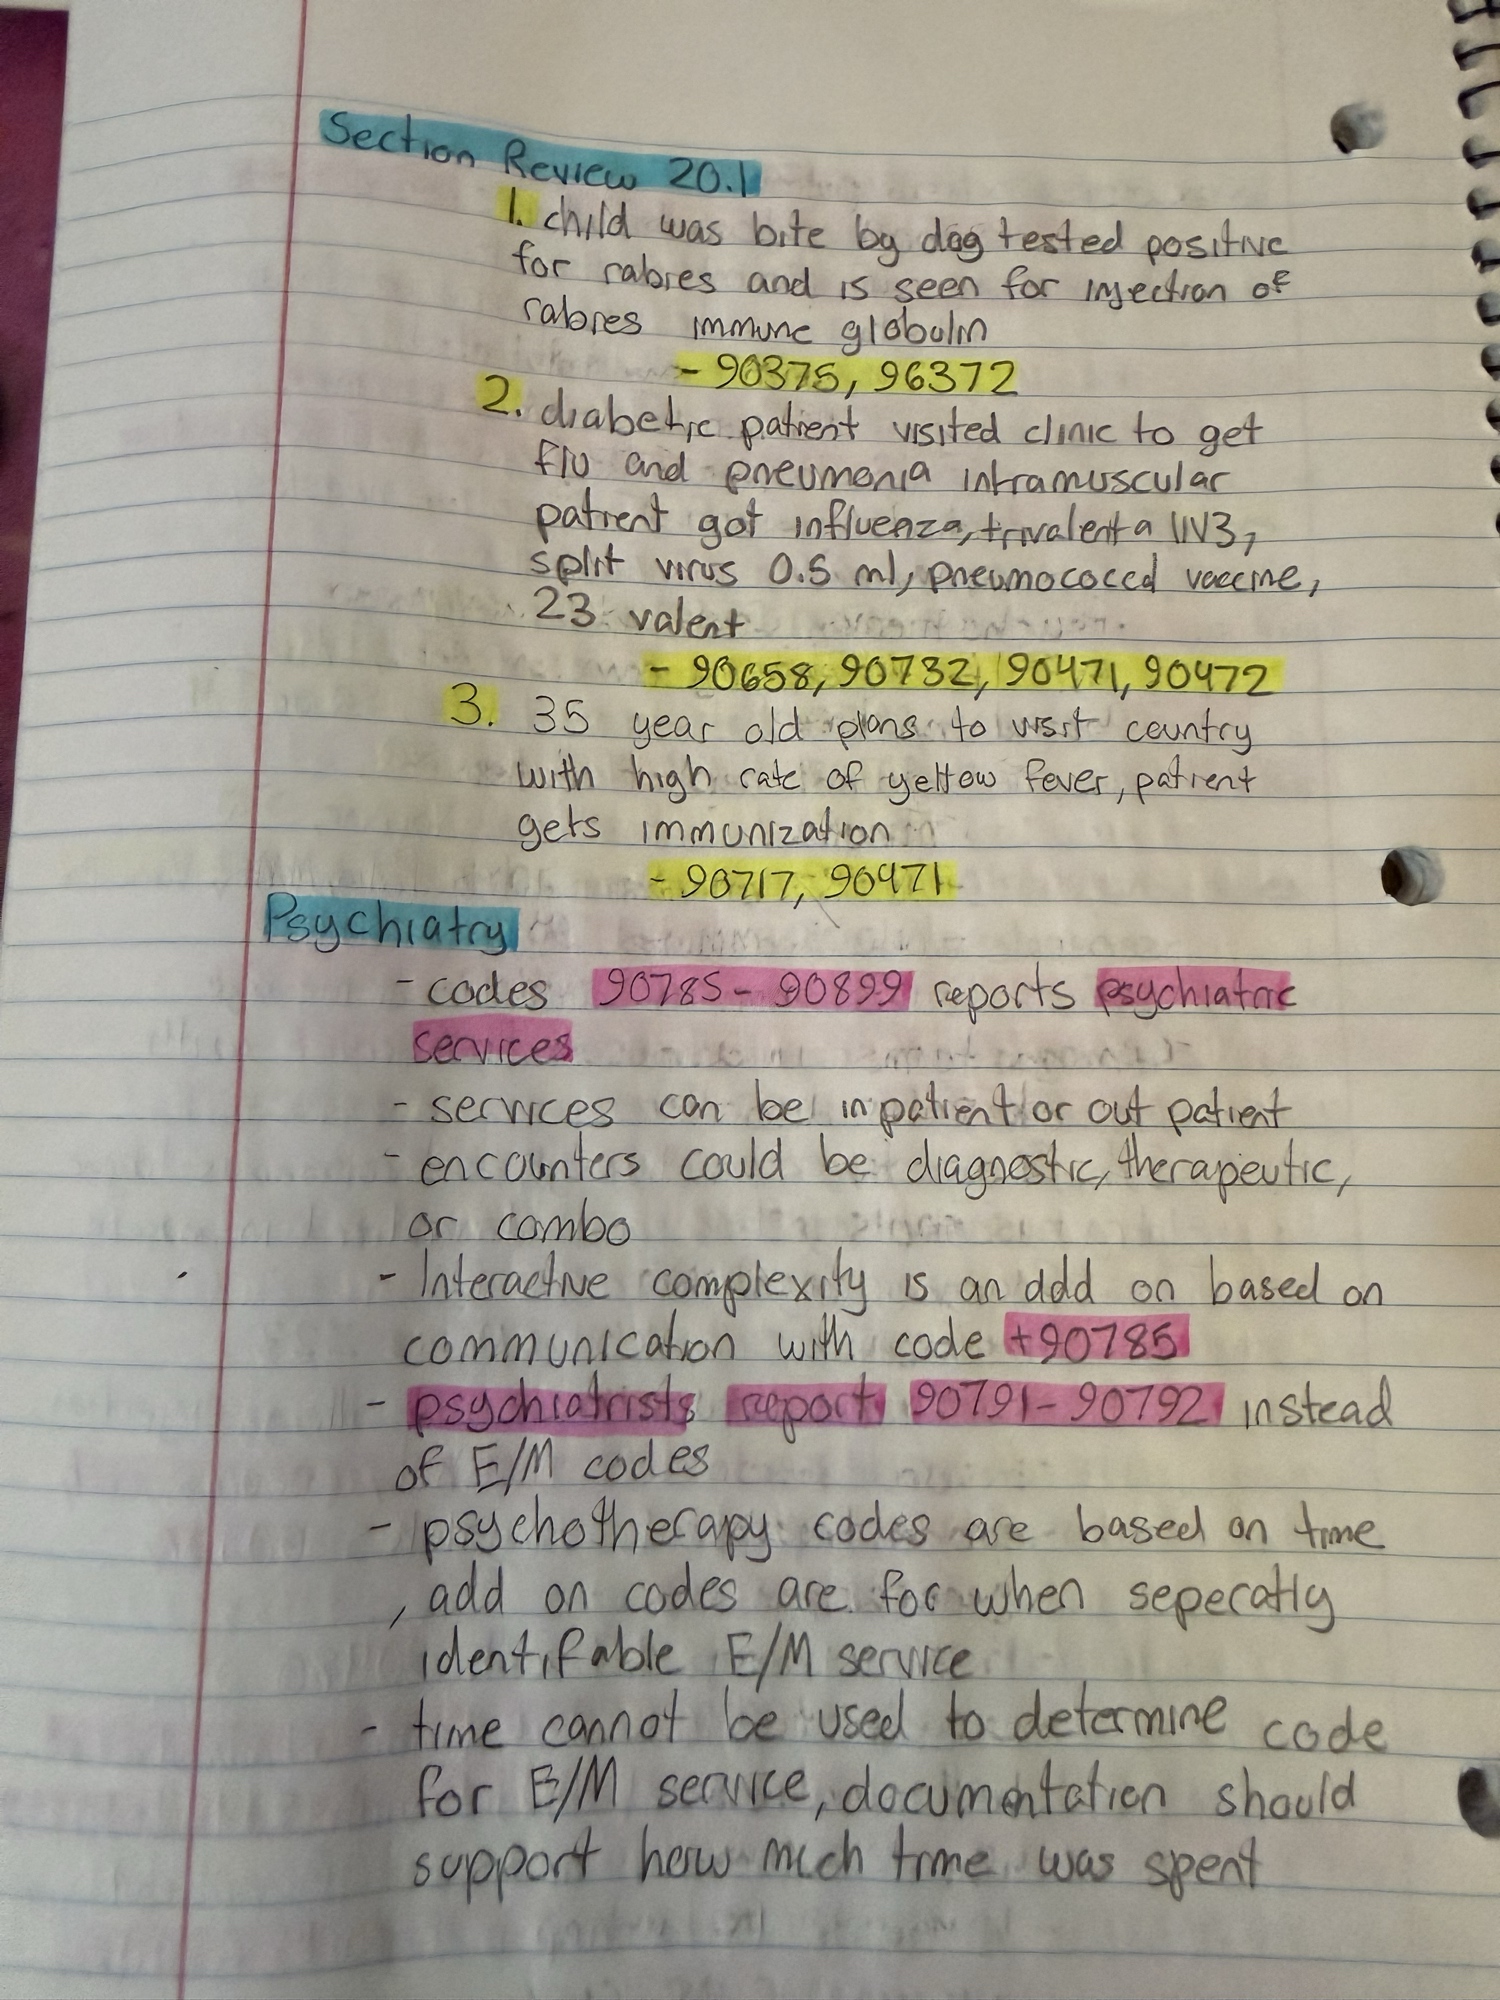 Section Review 20.1
1. child was bite by dog tested positive
for rabies and is seen for injection of
rabies immune globulin
- 90375, 96372
2. diabetic patient visited clinic to get
flu and pneumonia intramuscular
patient got influenza, trivalent a IIV3,
split virus 0.5 ml, pneumococcd vaccine,
23 valent
- 90658, 90732, 90471, 90472
3. 35 year old plans to visit country
with high rate of yellow fever, patient
gets immunization
- 90717, 90471
Psychiatry
- codes 90785 - 90899 reports psychiatric
services
- services can be inpatient or out patient
- encounters could be diagnostic, therapeutic,
or combo
- Interactive complexity is an add on based on
communication with code +90785
- psychiatrists report 90791 - 90792 instead
of E/M codes
- psychotherapy codes are based on time
, add on codes are for when seperatly
identifiable E/M service
- time cannot be used to determine code
for E/M service, documentation should
support how much time was spent